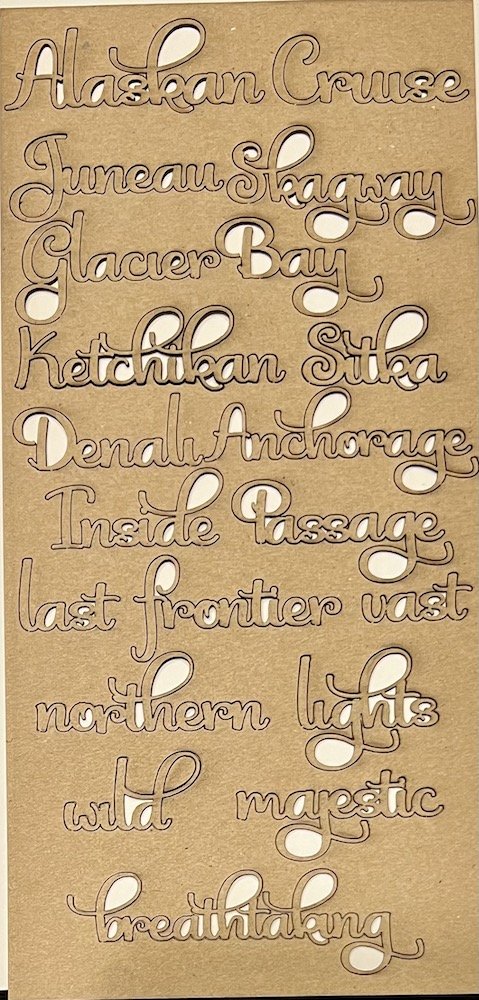 Alaskan Cruise
Juneau Skagway
Glacier Bay
Ketchikan Sitka
Denali Anchorage
Inside Passage
last frontier vast
northern lights
wild majestic
breathtaking